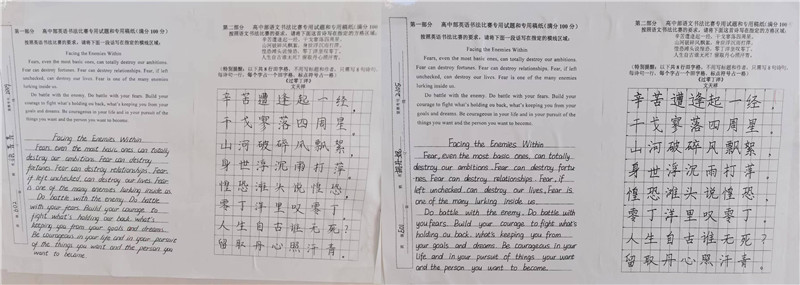 第一部分 高中部英语书法比赛专用试题和专用稿纸(满分100分)
按照英语书法比赛的要求，请将下面一段话写在指定的横线区域:
Facing the Enemies Within
Fears, even the most basic ones, can totally destroy our ambitions.
Fear can destroy fortunes. Fear can destroy relationships. Fear, if left
unchecked, can destroy our lives. Fear is one of the many enemies
lurking inside us.
Do battle with the enemy. Do battle with your fears. Build your
courage to fight what's holding us back, what's keeping you from your
goals and dreams. Be courageous in your life and in your pursuit of the
things you want and the person you want to become.
Facing the Enemies Within
Fears, even the most basic ones, can totally
destroy our ambitions. Fear can destroy
fortunes. Fear can destroy relationships. Fear,
if left unchecked, can destroy our lives. Fear
is one of the many enemies lurking inside us.
Do battle with the enemy. Do battle
with your fears. Build your courage to
fight what's holding our back, what's
keeping you from your goals and dreams.
Be courageous in your life and in your pursuit
of the things you want and the person you
want to become.
第二部分 高中部语文书法比赛专用试题和专用稿纸(满分100
按照语文书法比赛的要求，请将下面这首诗写在指定的方格区域:
辛苦遭逢起一经，干戈寥落四周星。
山河破碎风飘絮，身世浮沉雨打萍。
惶恐滩头说惶恐，零丁洋里叹零丁。
人生自古谁无死？留取丹心照汗青。
《过零丁洋》
文天祥
辛苦遭逢起一经，
干戈寥落四周星。
山河破碎风飘絮，
身世浮沉雨打萍。
惶恐滩头说惶恐，
零丁洋里叹零丁。
人生自古谁无死？
留取丹心照汗青。
第一部分 高中部英语书法比赛专用试题和专用稿纸(满分100分)
按照英语书法比赛的要求，请将下面一段话写在指定的横线区域:
Facing the Enemies Within
Fears, even the most basic ones, can totally destroy our ambitions.
Fear can destroy fortunes. Fear can destroy relationships. Fear, if left
unchecked, can destroy our lives. Fear is one of the many enemies
lurking inside us.
Do battle with the enemy. Do battle with your fears. Build your
courage to fight what's holding us back, what's keeping you from your
goals and dreams. Be courageous in your life and in your pursuit of the
things you want and the person you want to become.
Facing the Enemies Within
Fear, even the most basic ones, can totally
destroy our ambitions Fear can destroy fortu
nes. Fear can destroy relationships. Fear, if
left unchecked can destroy our lives, Fear is
one of the many lurking inside us.
Do battle with the enemy. Do battle with
you fears. Build your courage to fight what's
holding ou back, what's keeping you from
your goals and dreams. Be courageous in your
life and in your pursuit of the things you want
and the person you want to become.
第二部分 高中部语文书法比赛专用试题和专用稿纸(满分100
按照语文书法比赛的要求，请将下面这首诗写在指定的方格区域:
辛苦遭逢起一经，干戈寥落四周星。
山河破碎风飘絮，身世浮沉雨打萍。
惶恐滩头说惶恐，零丁洋里叹零丁。
人生自古谁无死？留取丹心照汗青。
《过零丁洋》
文天祥
辛苦遭逢起一经，
干戈寥落四周星。
山河破碎风飘絮，
身世浮沉雨打萍。
惶恐滩头说惶恐，
零丁洋里叹零丁。
人生自古谁无死？
留取丹心照汗青。